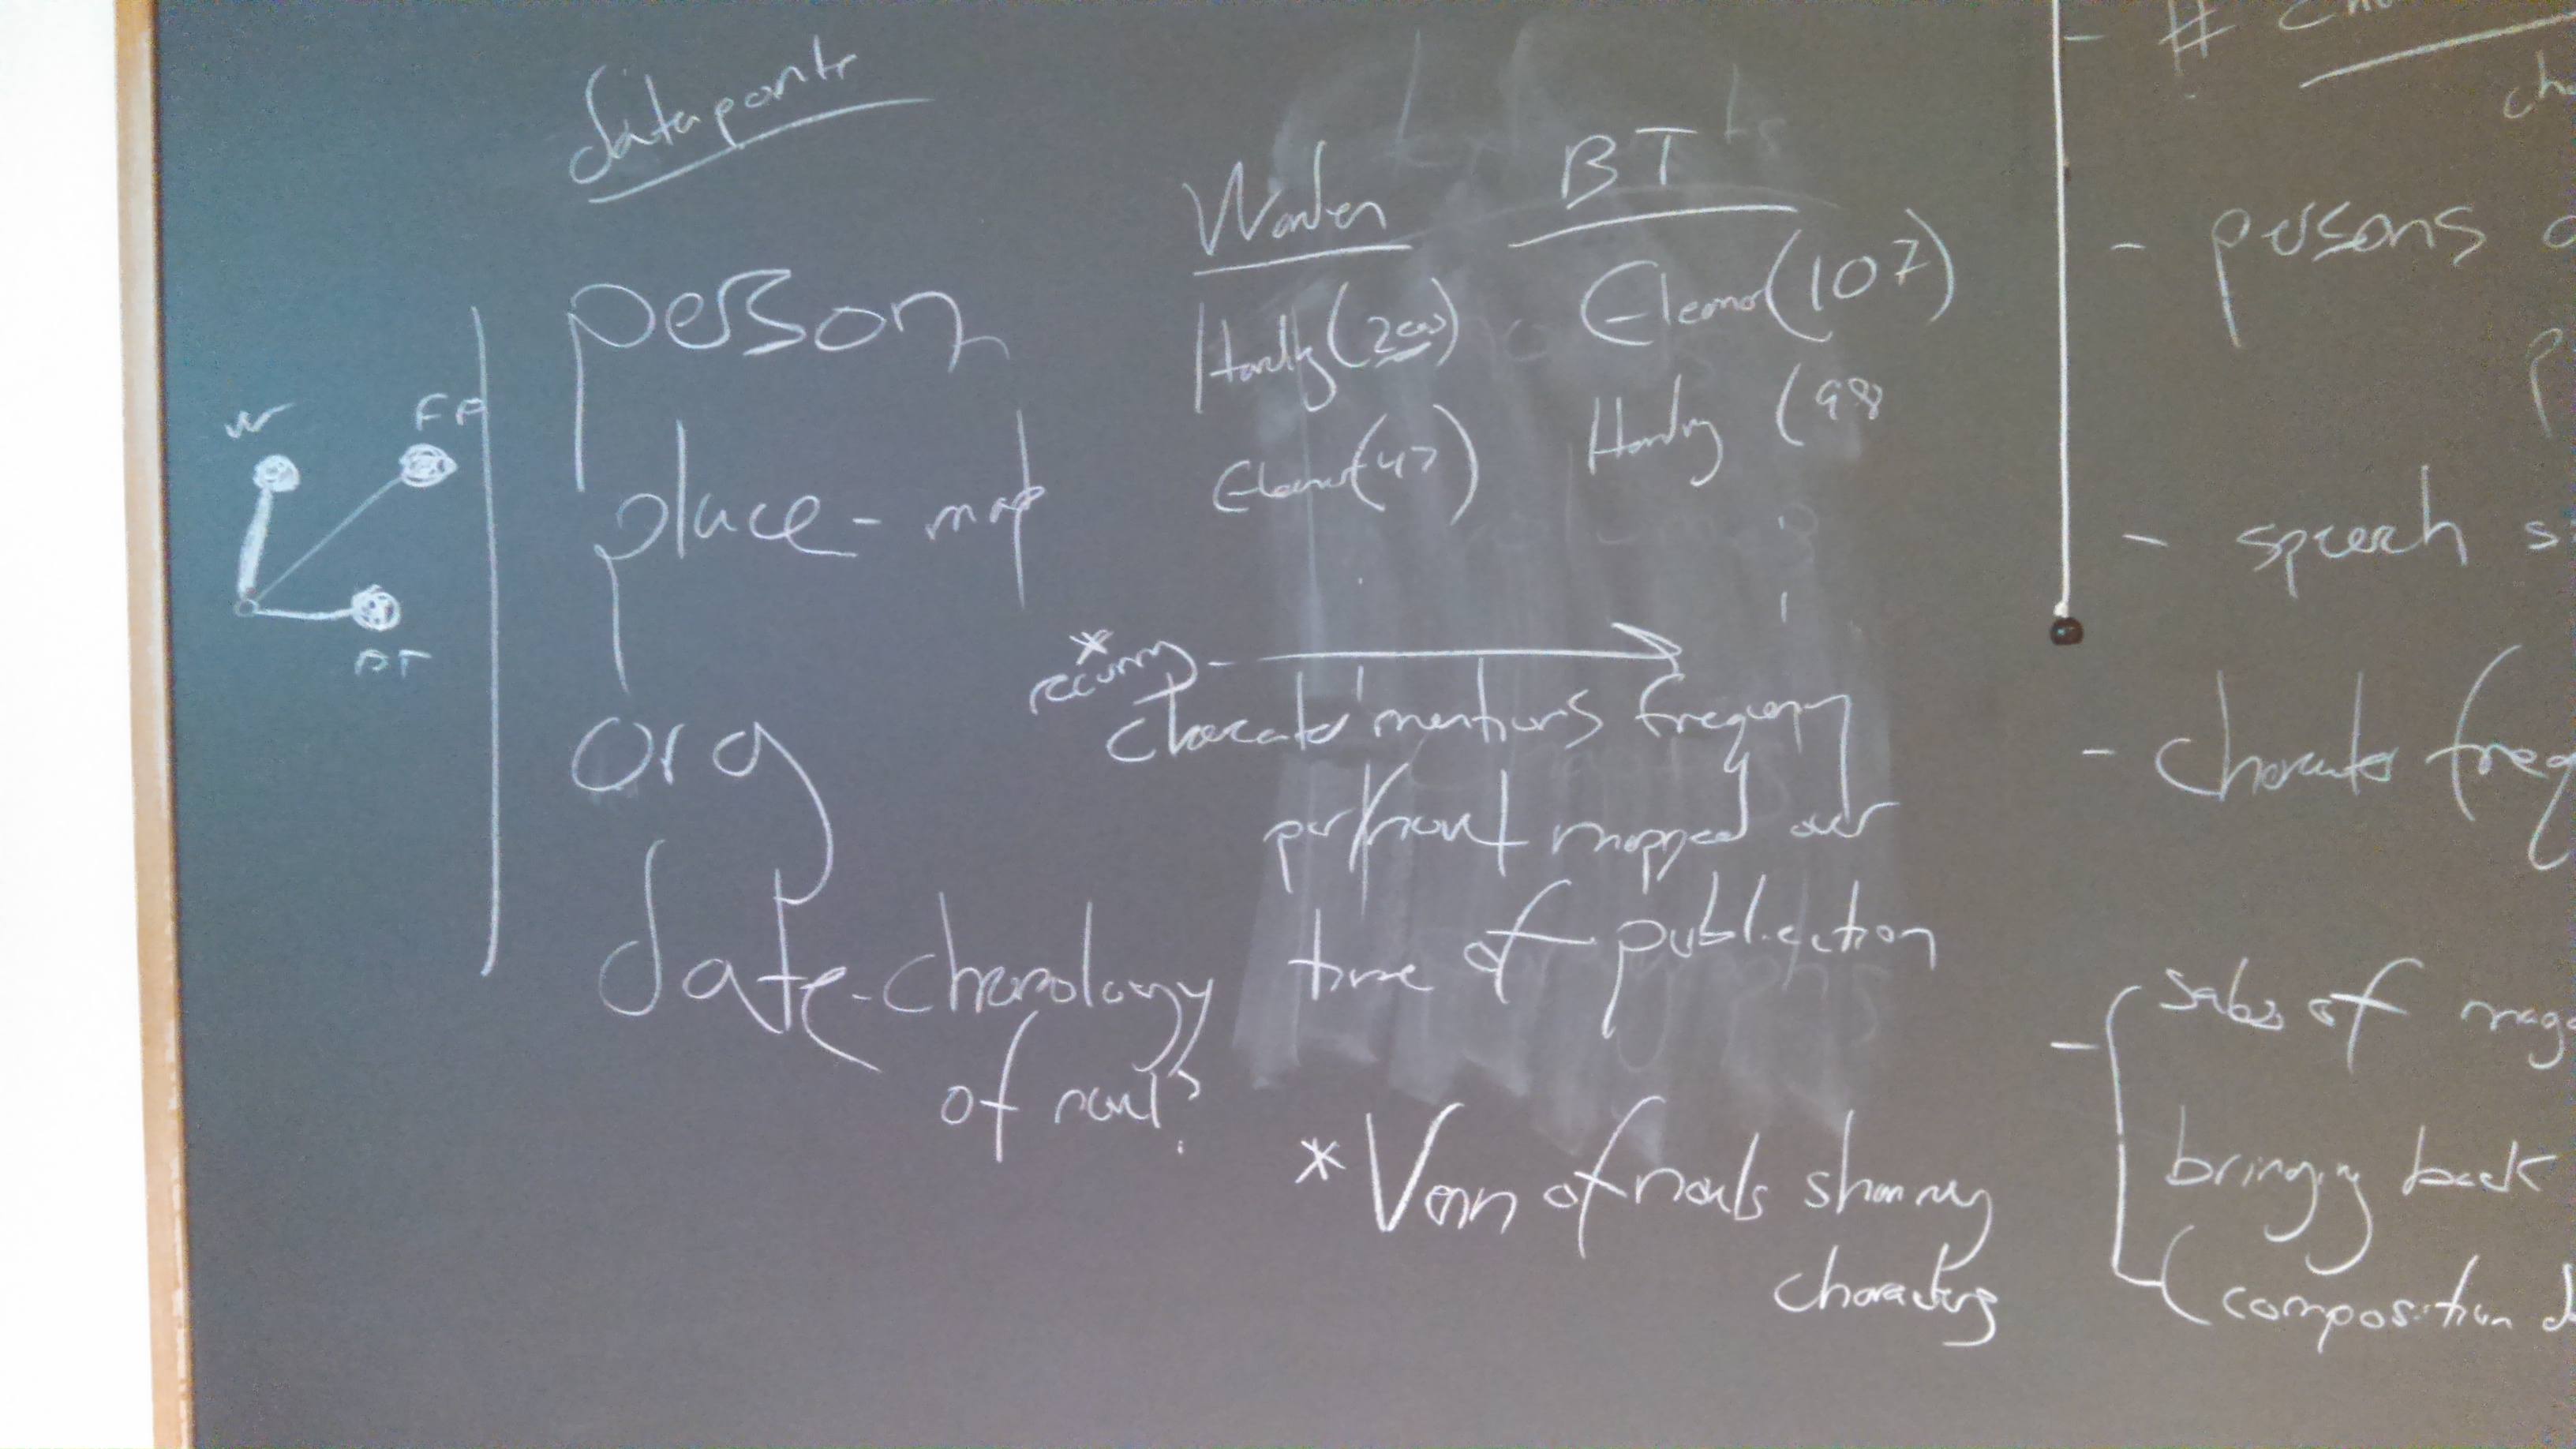 datapoints
person
place - map
org
date - chronology
of novel?
W
FP
BT
Warden
Harding (200)
Eleanor (47)
BT
Eleanor (107)
Harding (98
* recurring
character mentions frequency
per novel mapped over
time of publication
* Venn of novels sharing
characters
- #
- persons
- speech s
- character freq
- sales of mag
bringing back
(composition d